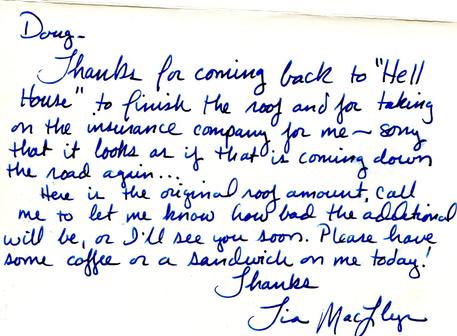 Doug-
Thanks for coming back to "Hell
House" to finish the roof and for taking
on the insurance company for me ~ sorry
that it looks as if that is coming down
the road again...
Here is the original roof amount, call
me to let me know how bad the additional
will be, or I'll see you soon. Please have
some coffee or a sandwich on me today!
Thanks